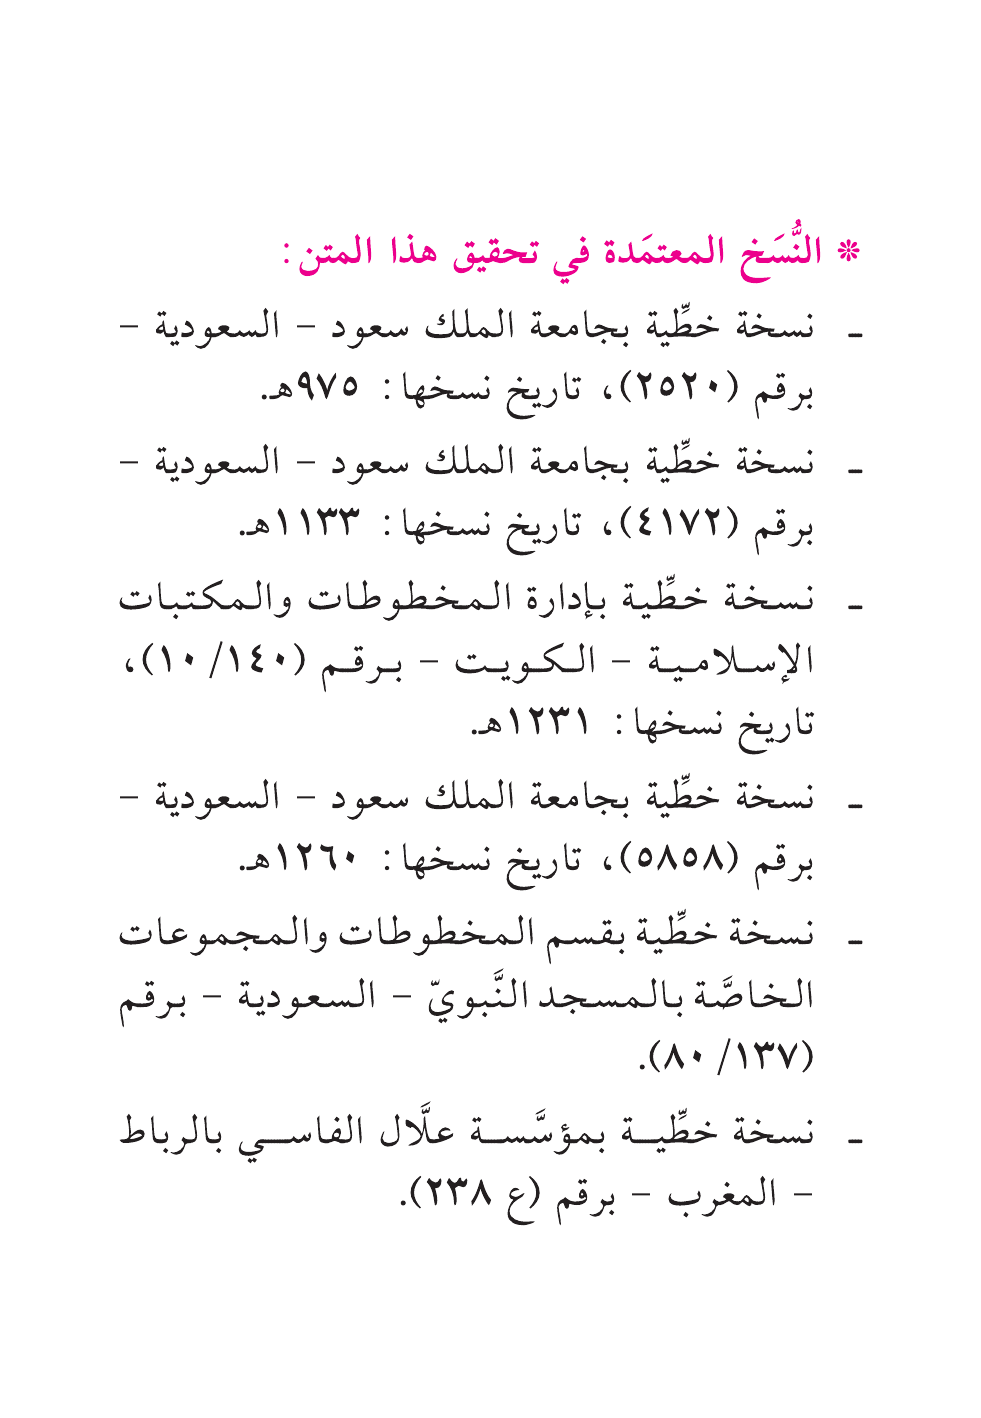 * النُّسَخ المعتمَدة في تحقيق هذا المتن:
ـ نسخة خطِّية بجامعة الملك سعود – السعودية –
برقم (٢٥٢٠)، تاريخ نسخها: ٩٧٥هـ.
ـ نسخة خطِّية بجامعة الملك سعود – السعودية –
برقم (٤١٧٢)، تاريخ نسخها: ١١٣٣هـ.
ـ نسخة خطِّية بإدارة المخطوطات والمكتبات
الإسلامية – الكويت – برقم (١٤٠/ ١٠)،
تاريخ نسخها: ١٢٣١هـ.
ـ نسخة خطِّية بجامعة الملك سعود – السعودية –
برقم (٥٨٥٨)، تاريخ نسخها: ١٢٦٠هـ.
ـ نسخة خطِّية بقسم المخطوطات والمجموعات
الخاصَّة بالمسجد النَّبويّ – السعودية – برقم
(١٣٧/ ٨٠).
ـ نسخة خطِّية بمؤسَّسة علَّال الفاسي بالرباط
– المغرب – برقم (ع ٢٣٨).